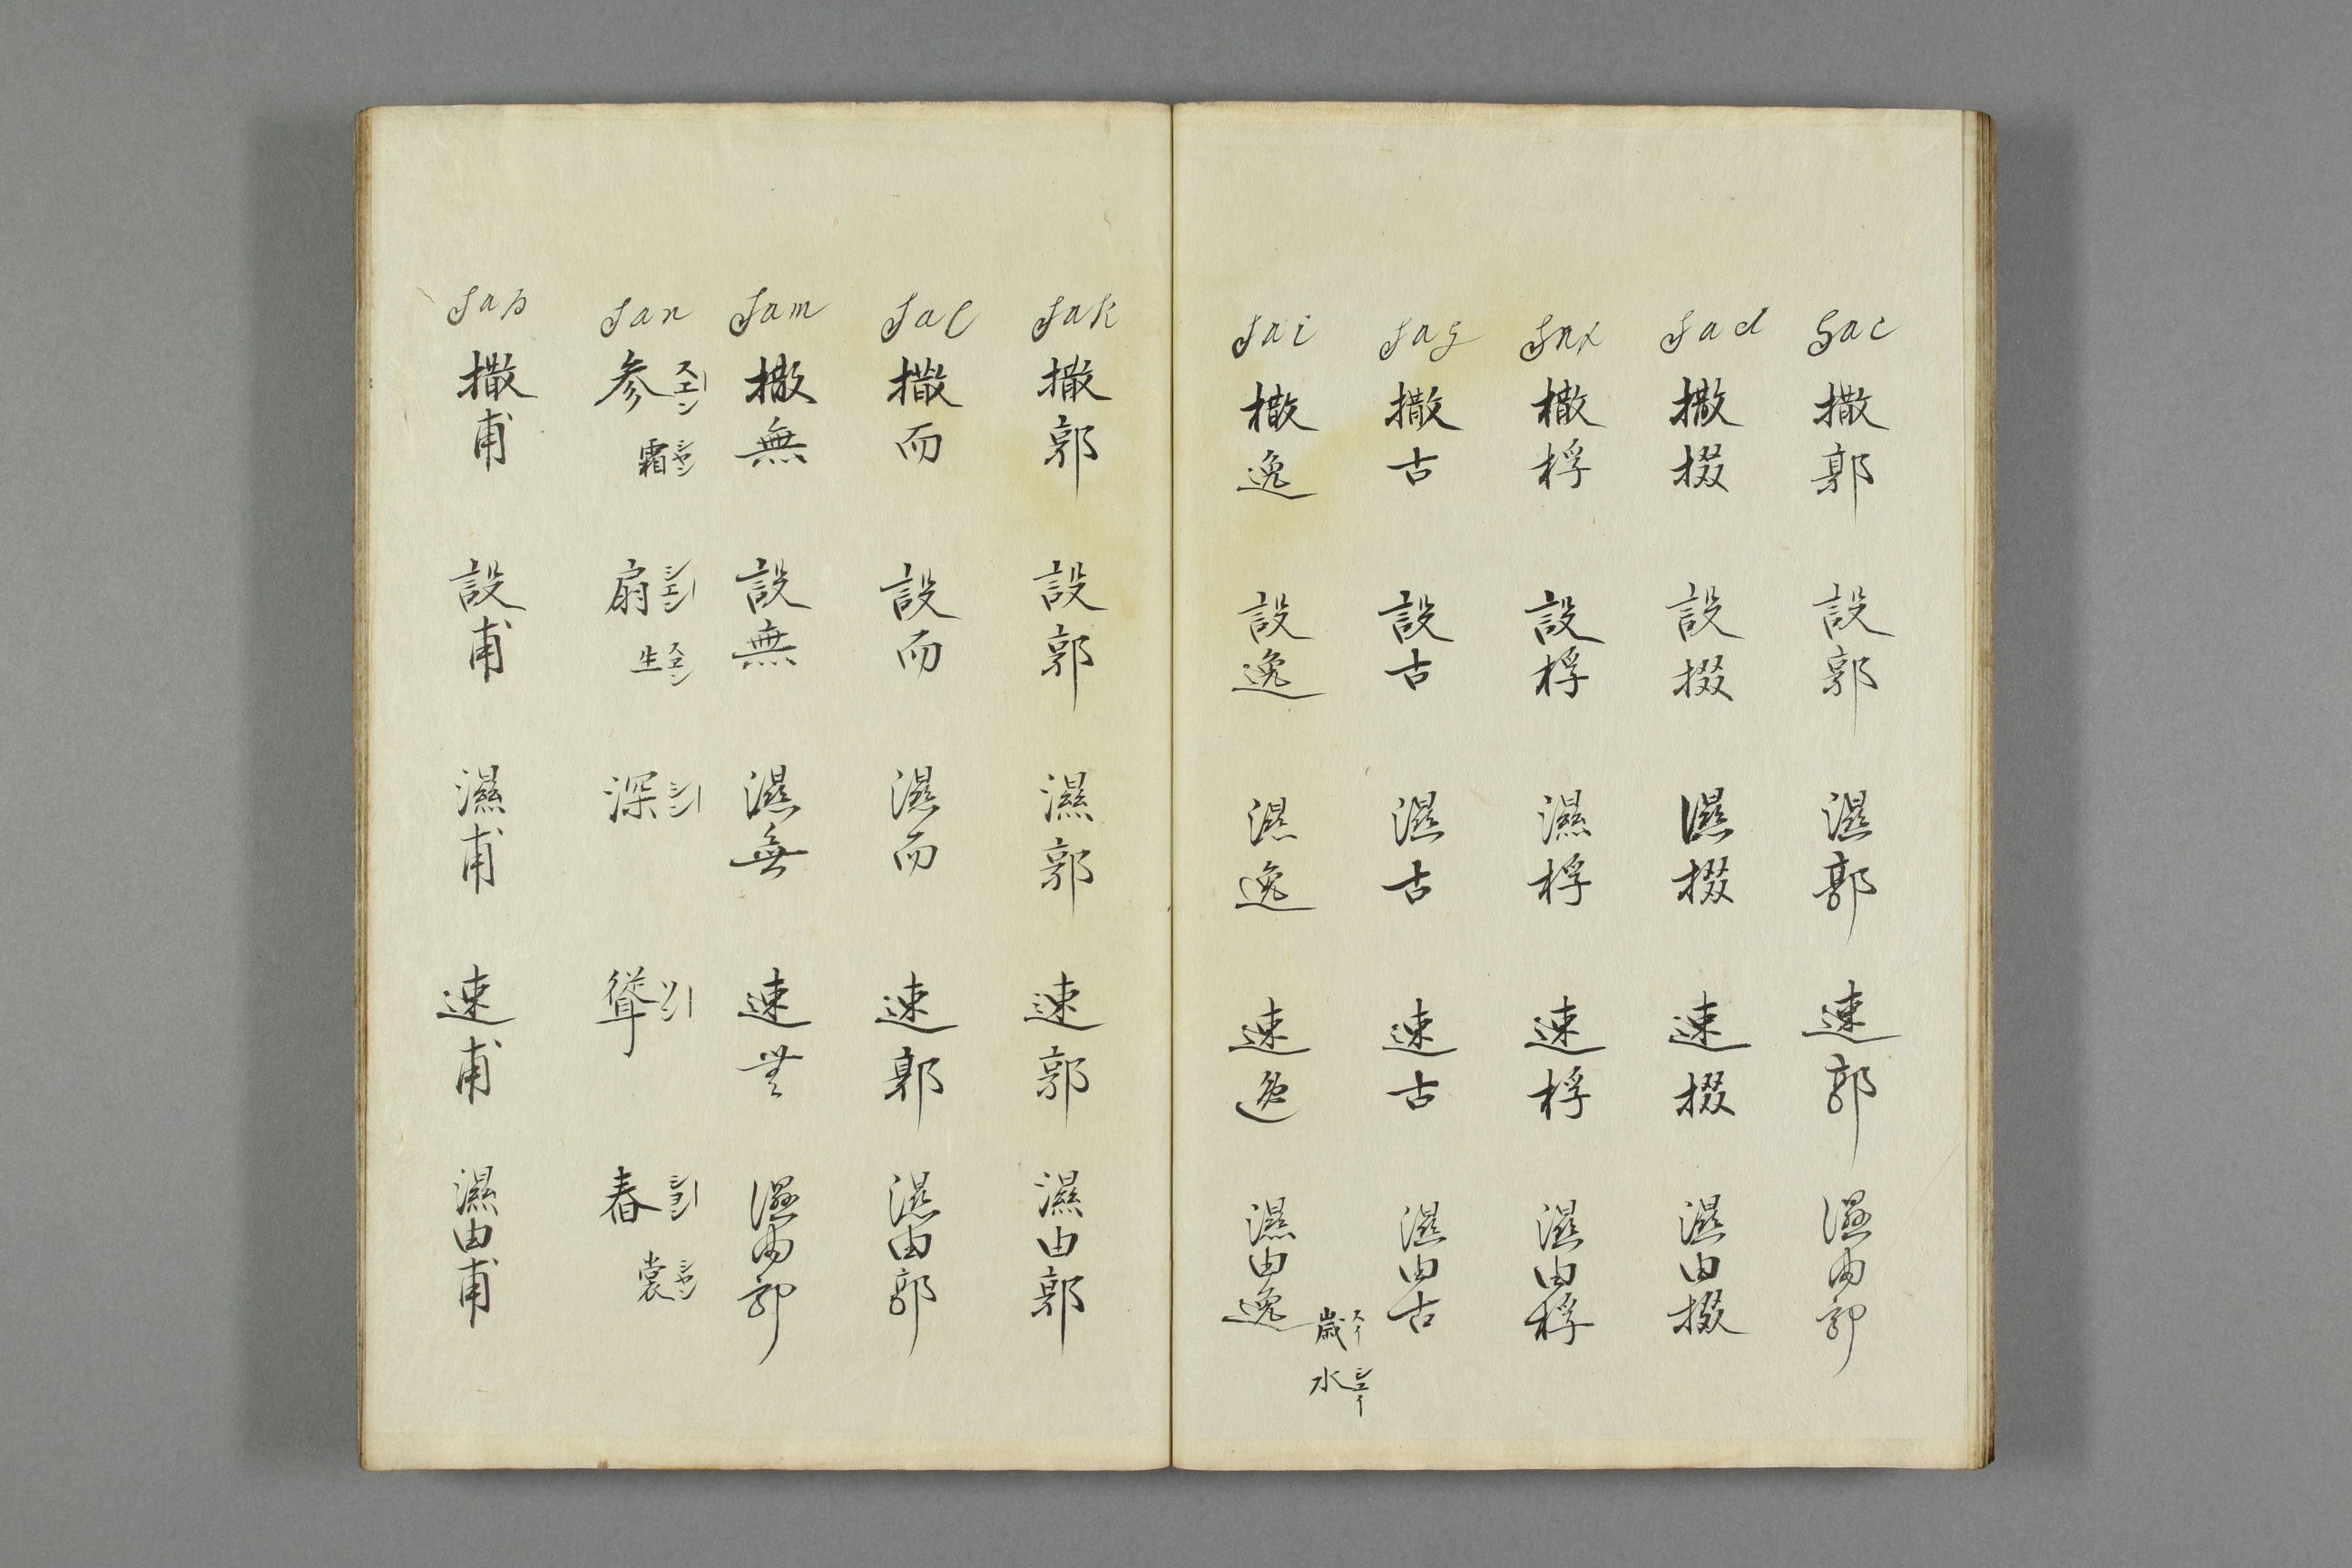 Sac 撒郭 設郭 濕郭 速郭 濕由郭
Sad 撒掇 設掇 濕掇 速掇 濕由掇
Sax 撒桴 設桴 濕桴 速桴 濕由桴
Sag 撒古 設古 濕古 速古 濕由古
歳スイ 水シユイ
Sai 撒逸 設逸 濕逸 速逸 濕由逸
Sak 撒郭 設郭 濕郭 速郭 濕由郭
Sal 撒而 設而 濕而 速郭 濕由郭
Sam 撒無 設無 濕無 速無 濕由郭
San 参スエン 霜シヤン 扇シエン 生スエン 深シン 聳ソン 春シヨン 裳シヤン
Sap 撒甫 設甫 濕甫 速甫 濕由甫